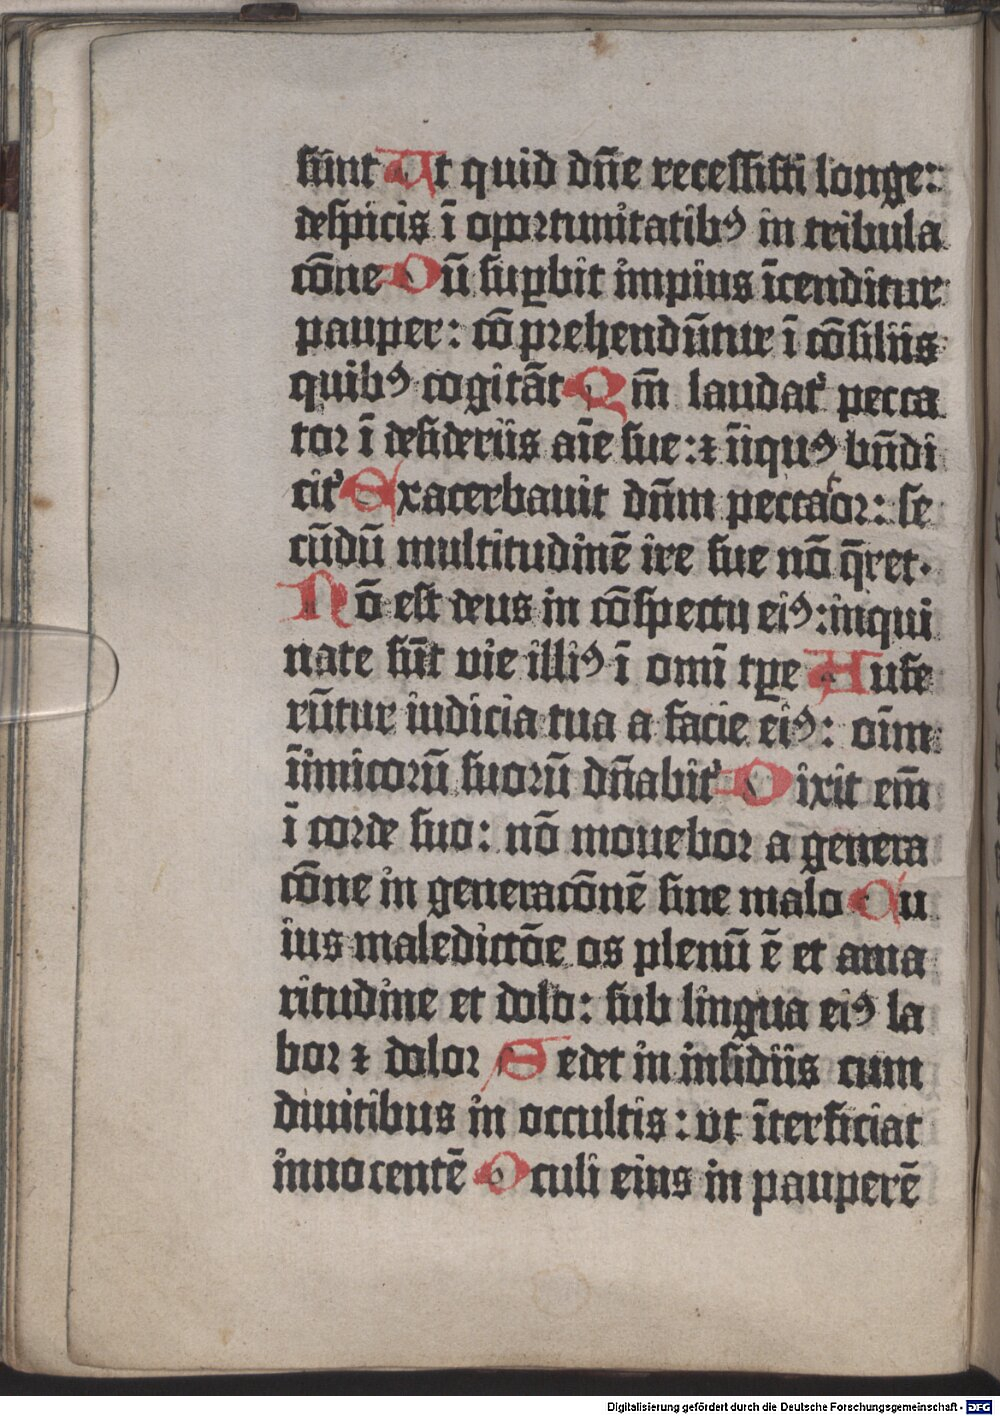 sunt At quid dn̄e recessisti longe:
despicis ī oportunitatibꝰ in tribula
cōne Dū suꝑbit impius īcenditur
pauper: cō prehendūtur ī cōsiliis
quibꝰ cogitāt Qm̄ laudat᷑ pecca
tor ī desideriis aīe sue: ⁊ īiquꝰ bn̄di
cit᷑ Exacerbauit dn̄m peccaor: se
cūdū multitudinē ire sue nō q̄ret.
Nō est deus in cōspectu eiꝰ: inqui
nate sūt vie illiꝰ ī omī tꝑe Aufe
rūtur iudicia tua a facie eiꝰ: oīm
īimicorū suorū dn̄abit᷑ Dixit em̄
ī corde suo: nō mouebor a genera
cōne in generacōnē sine malo Cu
ius maledictōe os plenū ē et ama
ritudine et dolo: sub lingua eiꝰ la
bor ⁊ dolor Sedet in insidiis cum
diuitibus in occultis: ut īterficiat
innocentē Oculi eius in pauperē
Digitalisierung gefördert durch die Deutsche Forschungsgemeinschaft - DFG